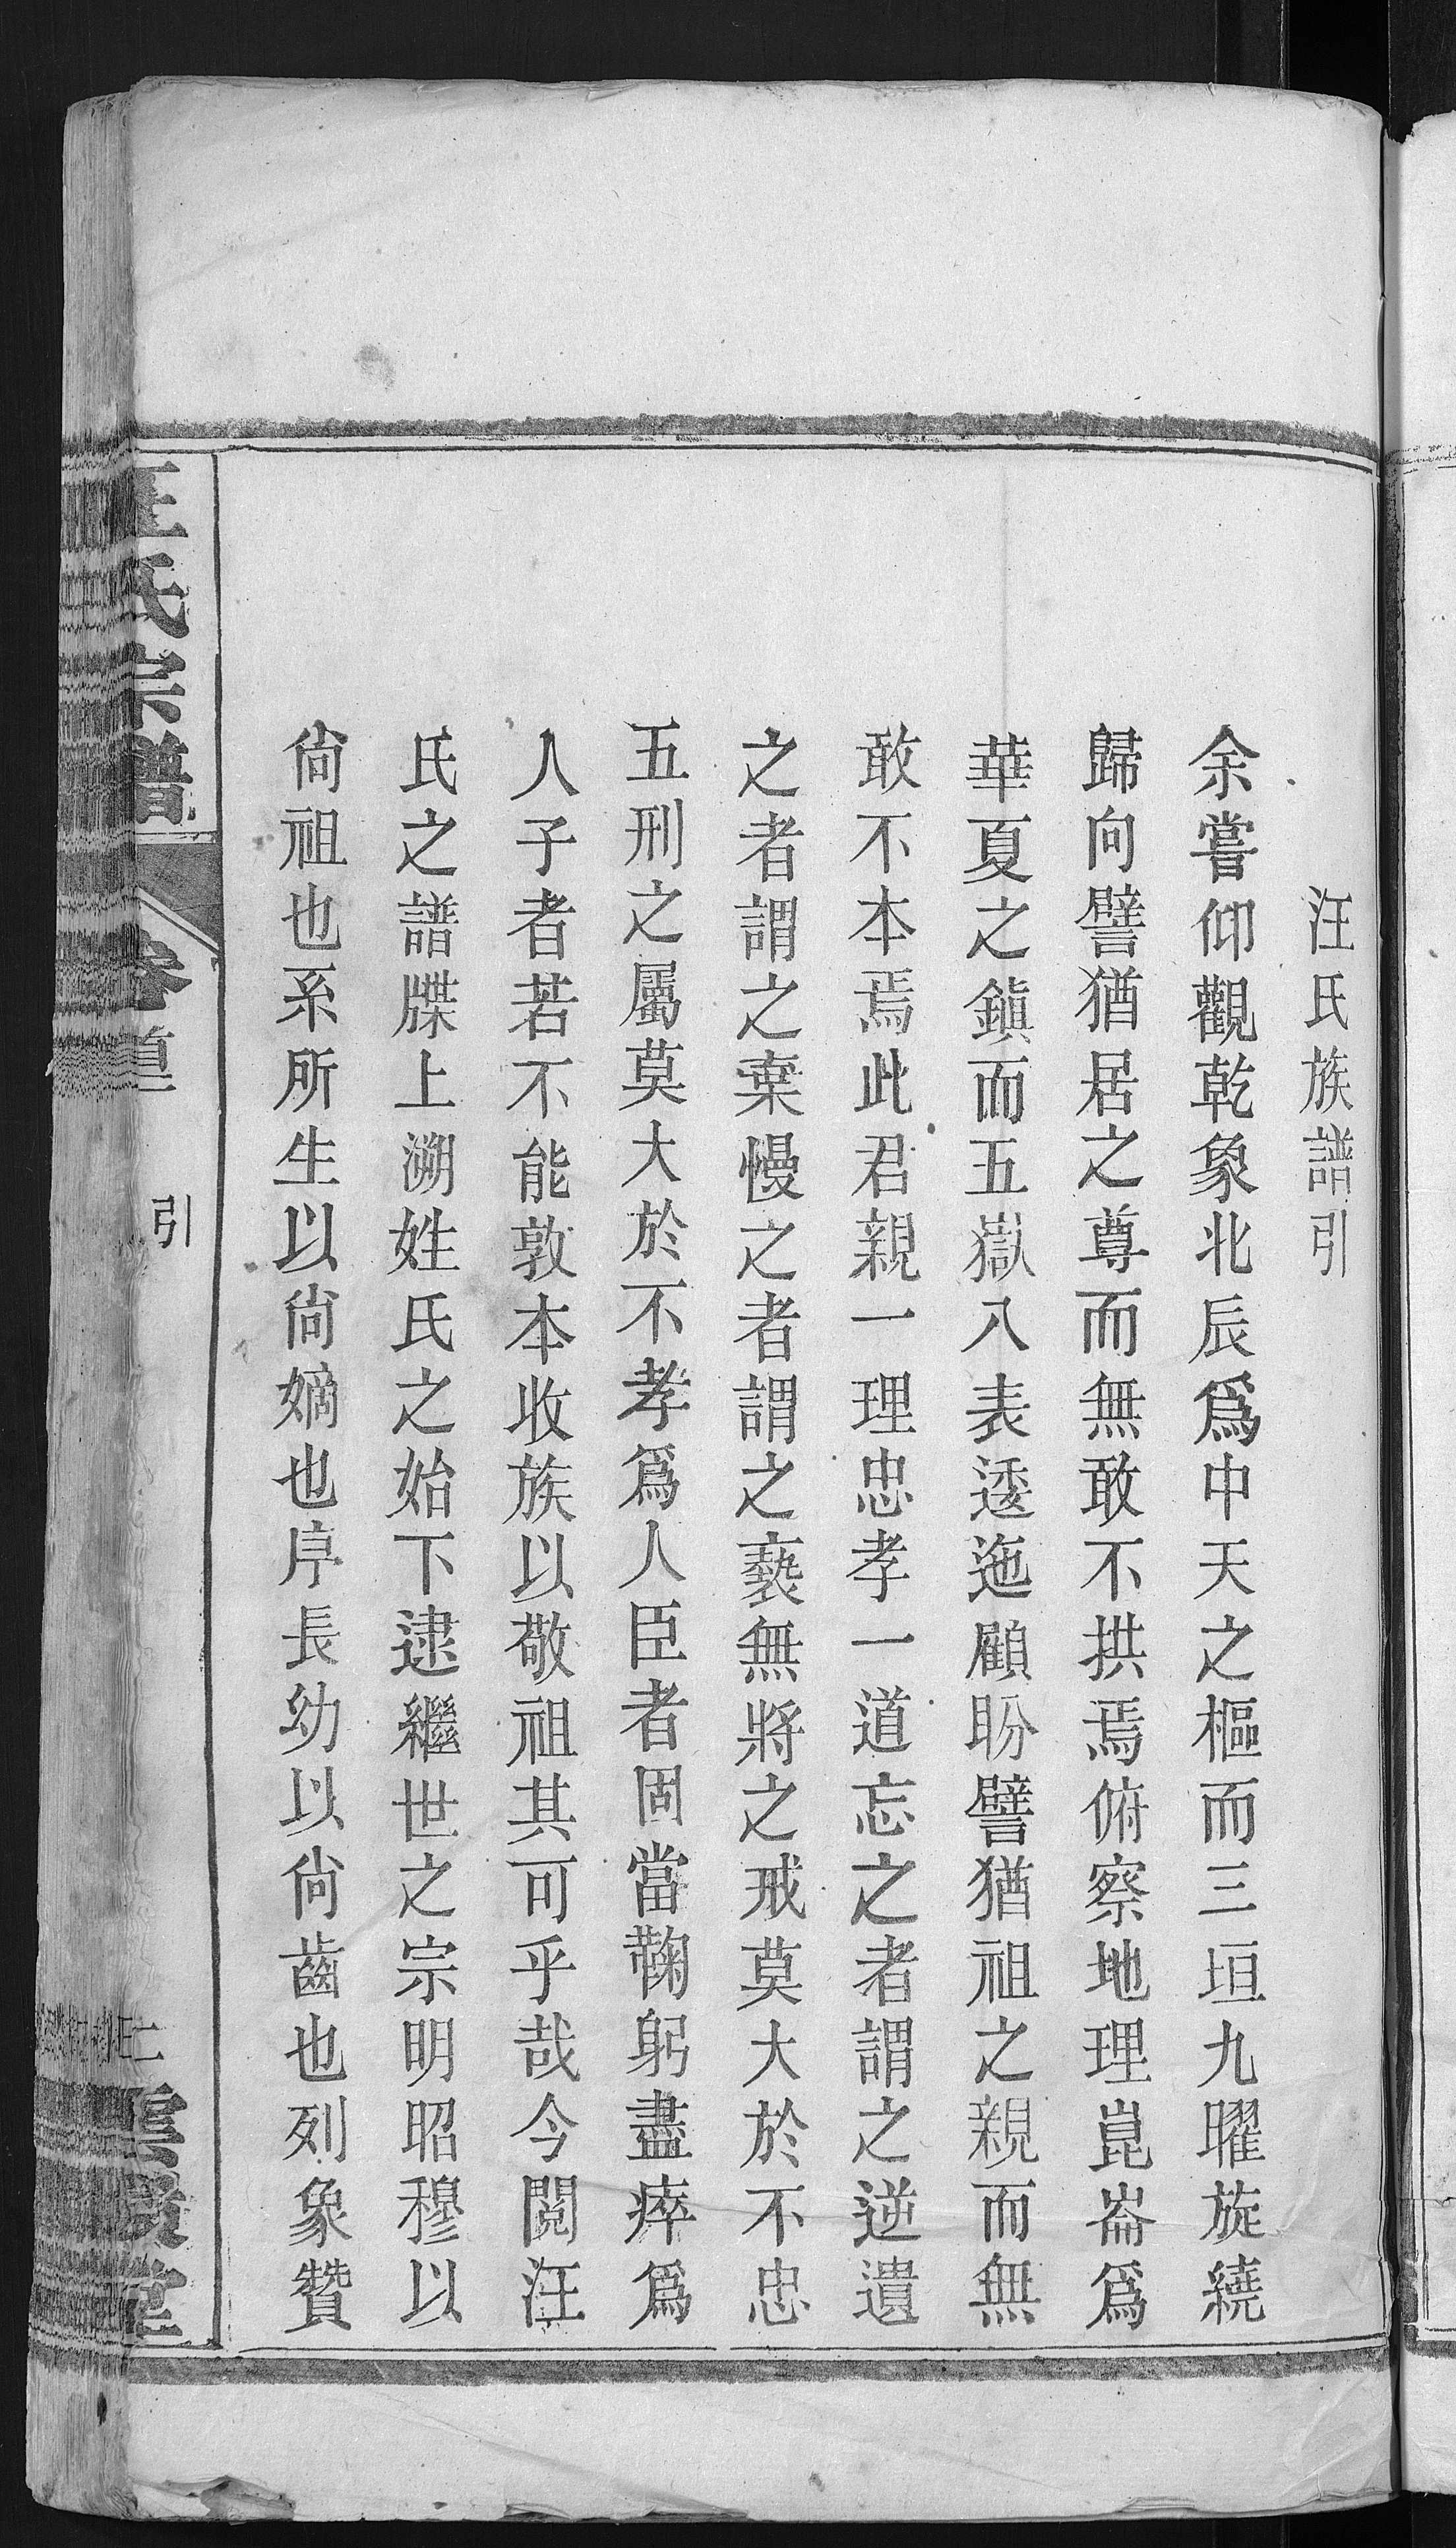 汪氏族譜引
余嘗仰觀乾象北辰爲中天之樞而三垣九曜旋繞
歸向譬猶居之尊而無敢不拱焉俯察地理崑崙爲
華夏之鎭而五嶽八表逶迤顧盼譬猶祖之親而無
敢不本焉此君親一理忠孝一道忘之者謂之逆遺
之者謂之棄慢之者謂之褻無將之戒莫大於不忠
五刑之屬莫大於不孝爲人臣者固當鞠躬盡瘁爲
人子者若不能敦本收族以敬祖其可乎哉今閱汪
氏之譜牒上溯姓氏之始下逮繼世之宗明昭穆以
尙祖也系所生以尙嫡也序長幼以尙齒也列象贊
汪氏宗譜
卷首
引